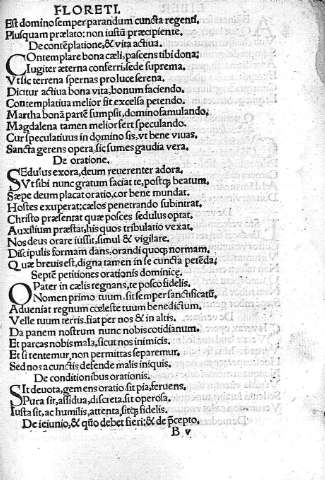 FLORETI.
Est domino semper parandum cuncta regenti,
Plusquam prælato; non iusta præcipiente.
De contēplatione, & vita activa.
Contemplare bona cæli, pascens tibi dona;
Iugiter æterna conferri, sede suprema.
Utile terrena spernas produce serena.
Dicitur activa bona vita, bonum faciendo.
Contemplativa melior sit excelsa petendo.
Martha bonā partē sumpsit, domino famulando,
Magdalena tamen melior fert speculando.
Cur speculativus in domino sis, ut bene vivas,
Sancta gerens opera, sic sumes gaudia vera.
De oratione.
SEdulus exora, deum reverenter adora,
Ut sibi nunc gratum faciat te, postq; beatum.
Sæpe deum placat oratio, cor bene mundat.
Hostes exuperat; cælos penetrando subintrat.
Christo præsentat quæ posces sedulus optat,
Auxilium præstat, his quos tribulatio vexat.
Nos deus orare iussit, simul & vigilare.
Discipulis formam dans, orandi quoq; normam,
Quæ brevis est, digna tamen in se cuncta petēda;
Septē petitiones orationis dominicę.
O Pater in cælis regnans, te posco fidelis.
Nomen primo tuum sit semper sanctificatū,
Adveniat regnum cœleste tuum benedictum.
Velle tuum terris fiat per nos & in altis.
Da panem nostrum nunc nobis cotidianum.
Et parcas nobis mala, sicut nos inimicis.
Et si tentemur, non permittas separemur.
Sed nos a cunctis defende malis iniquis.
De conditionibus orationis.
SIt devota, gemens oratio sit pia, fervens,
Pura sit, assidua, discreta, sit operosa.
Iusta sit, ac humilis, attenta, sitq; fidelis.
De ieiunio, & quo debet fieri; & de p̄cepto.
B v